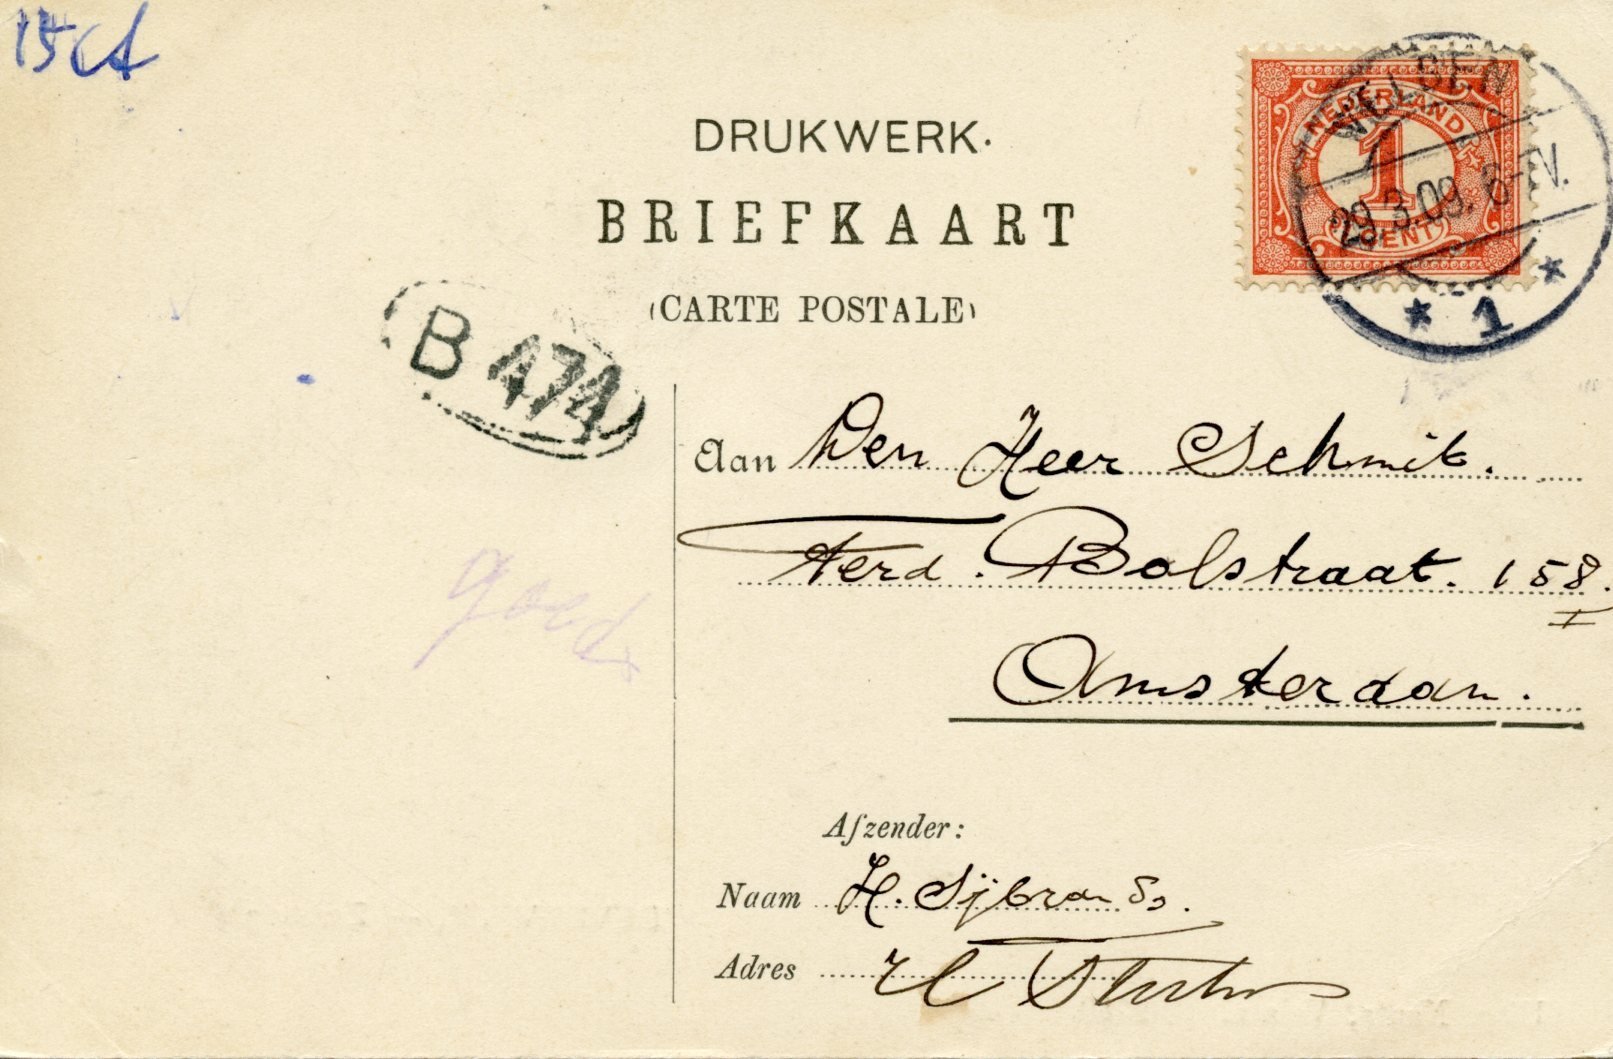 15 ct
DRUKWERK.
BRIEFKAART
(CARTE POSTALE)
NEDERLAND
1
CENT
VELSEN
29.3.09. 8-
* 1 *
B 474
Aan Den Heer Schmit.
Ferd. Bolstraat. 158.
I
Amsterdam.
goed
Afzender:
Naam H. Sijbrands.
Adres